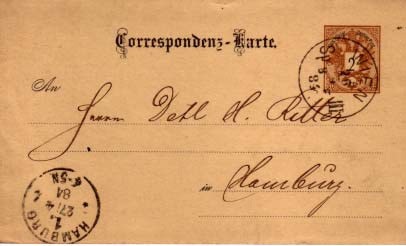 Correspondenz-Karte.
An
Herrn Detl H. Ritter
in Hamburg.
WIEN
HAMBURG
1.
27/4
84
4-5N